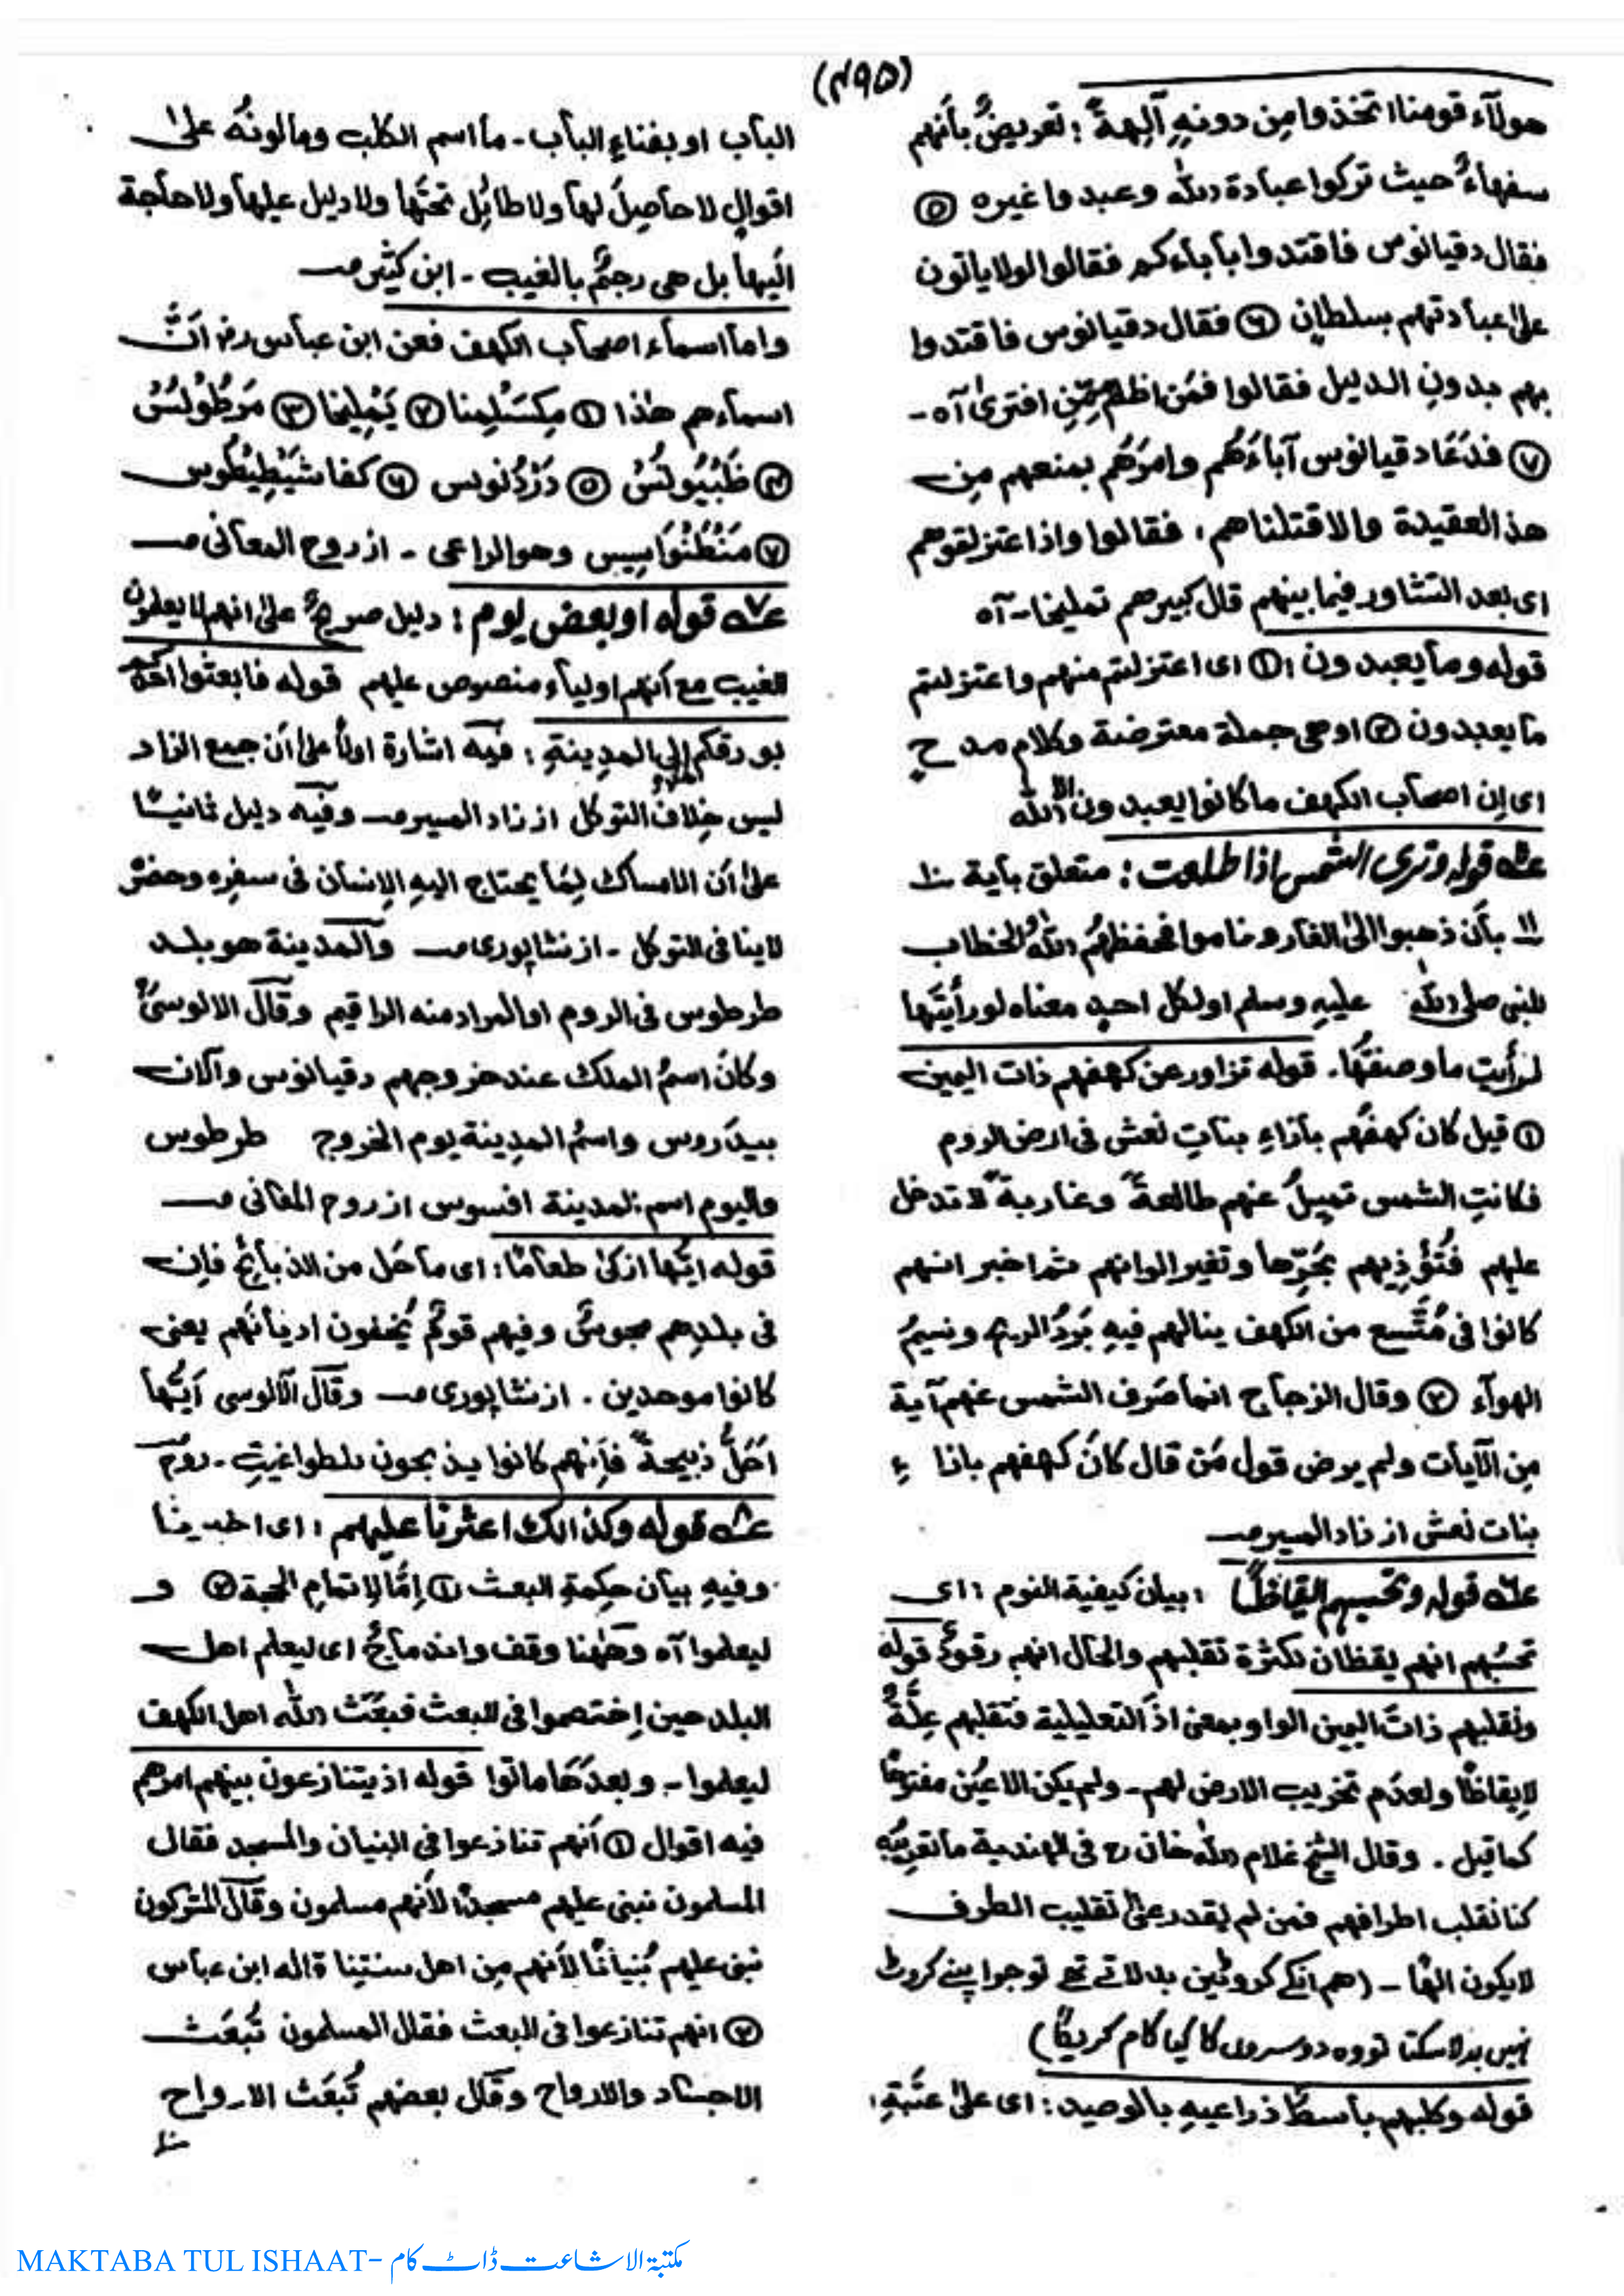 (٤٩٥)
هولآء قومنا اتخذوا مِن دونهٖ آلِهةً ؛ تعريضٌ بأنهم
سفهاءٌ حيث تركوا عبادة الله وعبدوا غيره ⑤
فقال دقيانوس فاقتدوا بآباءكم فقالوا لولا ياتون
علىٰ عبادتهم بسلطانٍ ⑥ فقال دقيانوس فاقتدوا
بهم بدونِ الدليل فقالوا فمَن اظلم مِمّنِ افترىٰ آه -
⑦ فدَعَا دقيانوس آباءَهُم وامرَهُم بمنعهم مِن
هذ العقيدة والا قتلناهم ، فقالوا واذا عتزلتموهم
اى بعد التشاور فيما بينهم قال كبيرهم تمليخا - آه
قوله وما يعبدون ؛ ① اى اعتزلتم منهم واعتزلتم
ما يعبدون ② او هى جملة معترضة وكلام مدحٍ
اى إن اصحاب الكهف ما كانوا يعبدون الا الله
قوله وترى الشمس اذا طلعت ؛ متعلق بآية
بأن ذهبوا الىٰ الغار وناموا فحفظهُم اللهُ الخطاب
للنبى صلى الله عليهِ وسلم او لكل احدٍ معناه لو رأيتَها
لرأيتَ ما وصفتُها . قوله تزاور عن كهفهم ذات اليمين
① قيل كان كهفُهم بأزاءِ بناتِ نعش فى ارض الروم
فكانتِ الشمس تميلُ عنهم طالعةً وغاربةً لا تدخل
عليهم فتُؤْذِيهم بحَرِّها وتغير الوانهم ثم اخبر انهم
كانوا فى مُتَّسع من الكهف ينالهم فيهِ بَرْدُ الريح ونسيمُ
الهوآء ② وقال الزجاج انما صَرف الشمس عنهم آية
مِن الآيات ولم يرض قول مَن قال كانَ كهفهم بازاءِ
بنات نعش از زاد المسير
قوله وتحسبهم ايقاظًا ؛ بيان كيفية النوم ؛ اى
تحسَبُهم انهم يقظان لكثرة تقلبهم والحال انهم رقودٌ قوله
ونقلبهم ذاتَ اليمين الواو بمعنى اذ التعليلية فتقلبهم عِلّةٌ
لإيقاظًا ولعدَم تخريب الارض لهم - ولم يكن الاعيُن مفتوحًا
كما قيل . وقال الشيخ غلام الله خان رح فى الهندية ما تعريبه
كنا نقلب اطرافهم فمن لم يقدر علىٰ تقليب الطرف
لا يكون الٰهًا - (هم انكے كروٹيں بدلاتے تھے تو جو اپنے كروٹ
نہيں بدلا سكتا تو وه دوسروں كا كيا كام كريگا)
قوله وكلبهم بأسطٌ ذراعيهِ بالوصيد ؛ اى علىٰ عَتَبةِ ؛
البأب او بفناءِ البأب - ما اسم الكلب وما لونُه علىٰ
اقوالٍ لا حأصِلَ لها ولا طائِل تحتَها ولا دليل عليها ولا حأجة
اليها بل هى رجمٌ بالغيب - ابن كثير
واما اسماء اصحاب الكهف فعن ابن عباس رض انّ
اسماءهم هٰذا ① مِكسَلمِنا ② يَمْلِيخا ③ مَرطُوْلسُ
④ ثَبْيُونسُ ⑤ دَرْدُنوس ⑥ كفاشيْطِيطُوس
⑦ مَنْطنُوَاسِيس وهو الراعى - از روح المعانى
قوله او بعض يوم ؛ دليل صريحٌ علىٰ انهم لا يعلمون
الغيب مع انهم اولياء منصوص عليهم قوله فابعثوا احدكم
بورقكم إلى المدينةِ ؛ فيه اشارة اولاً علىٰ ان جمع الزاد
ليس خلاف التوكل از زاد المسير وفيه دليل ثانيًا
علىٰ ان الامساك لِمَا يحتاج اليهِ الإنسان فى سفرِه وحضرِ
لا ينا فى التوكل - از نشاپورى والمدينة هو بلد
طرطوس فى الروم او المراد منه الرقيم وقال الالوسىُّ
وكانَ اسمُ الملك عند خروجهم دقيانوس والآن
بيدَروس واسمُ المدِينة يوم الخروج طرطوس
واليوم اسم المدينة افسوس از روح المعانى
قوله ايّها ازكىٰ طعامًا ؛ اى ما حَل من الذبأئح فإن
فى بلدِهم مجوسٌ وفيهم قومٌ يُخفون اديأنَهم يعنى
كانوا موحدين . از نشاپورى وقال الآلوسى اَيُّها
اَحَلُّ ذبيحةً فإنهم كانوا يذبحون للطواغيتِ - روح
قوله وكذالك اعثرنا عليهم ؛ اى اخبرنا
وفيهِ بيأن حِكمةِ البعث ① اِمَّا لإتمامِ الحجة ② و
ليعلموا آه وهٰهنا وقف واندماجٌ اى ليعلم اهل
البلد حين اِختصموا فى البعث فبعَثَ الله اهل الكهف
ليعلموا - وبعدَها ماتوا قوله اذ يتنازعون بينهم امرهم
فيه اقوال ① اَنهم تنازعوا فى البنيان والمسجد فقال
المسلمون نبنى عليهم مسجدًا لاَنهم مسلمون وقال المشركون
نبنى عليهم بُنيانًا لاَنهم مِن اهل سنتِنا قاله ابن عباس
② انهم تنازعوا فى البعث فقال المسلمون تُبعَث
الاجساد والارواح وقال بعضهم تُبعَث الارواح
MAKTABA TUL ISHAAT- مکتبۃ الاشاعت ڈاٹ کام